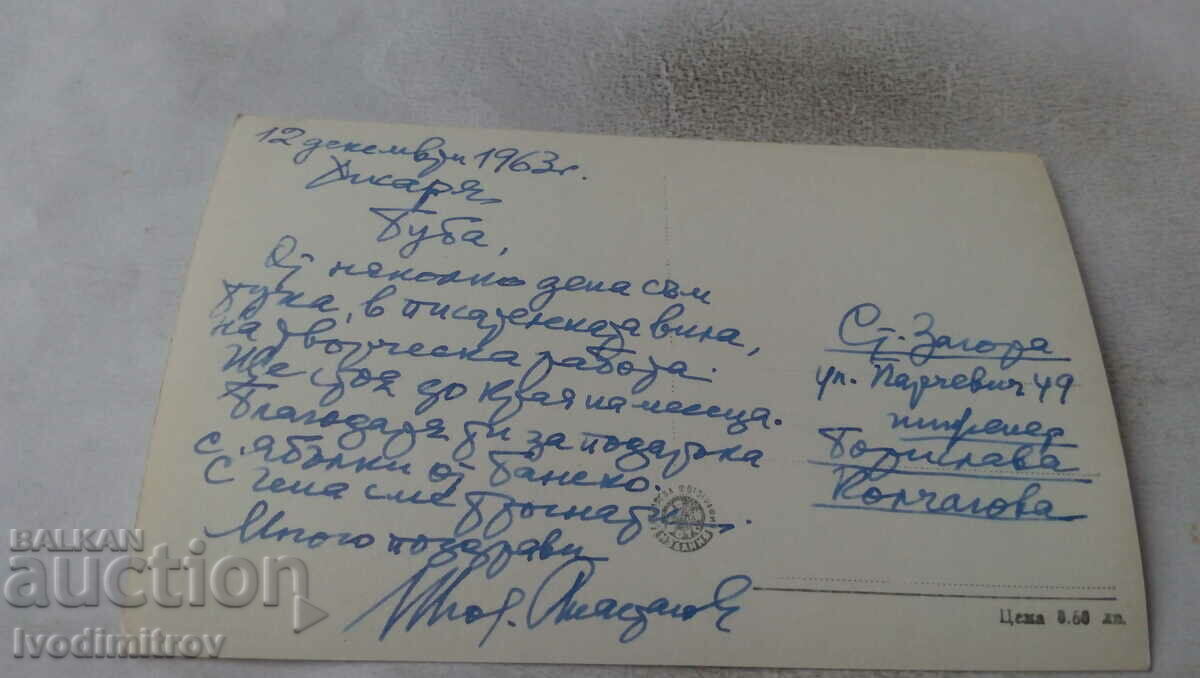 12 декември 1963 г.
Буба,
От неколко дена съм
тука, в писателската вила,
на творческа работа.
Ще стоя до края на месеца.
Благодаря ти за подаръка
с ябълки от Банско.
С Гена сме трогнати.
Много поздрави
Ст. Загора
ул. Парчевич 49
Борислава
Колчагова
Цена 0.60 лв.
BALKAN
auction
Ivodimitrov